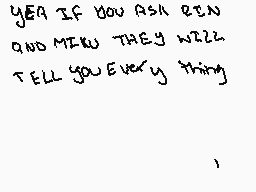 YEA IF YOU ASK RIN
AND MIKU THEY WILL
TELL YOU EVERY Thing